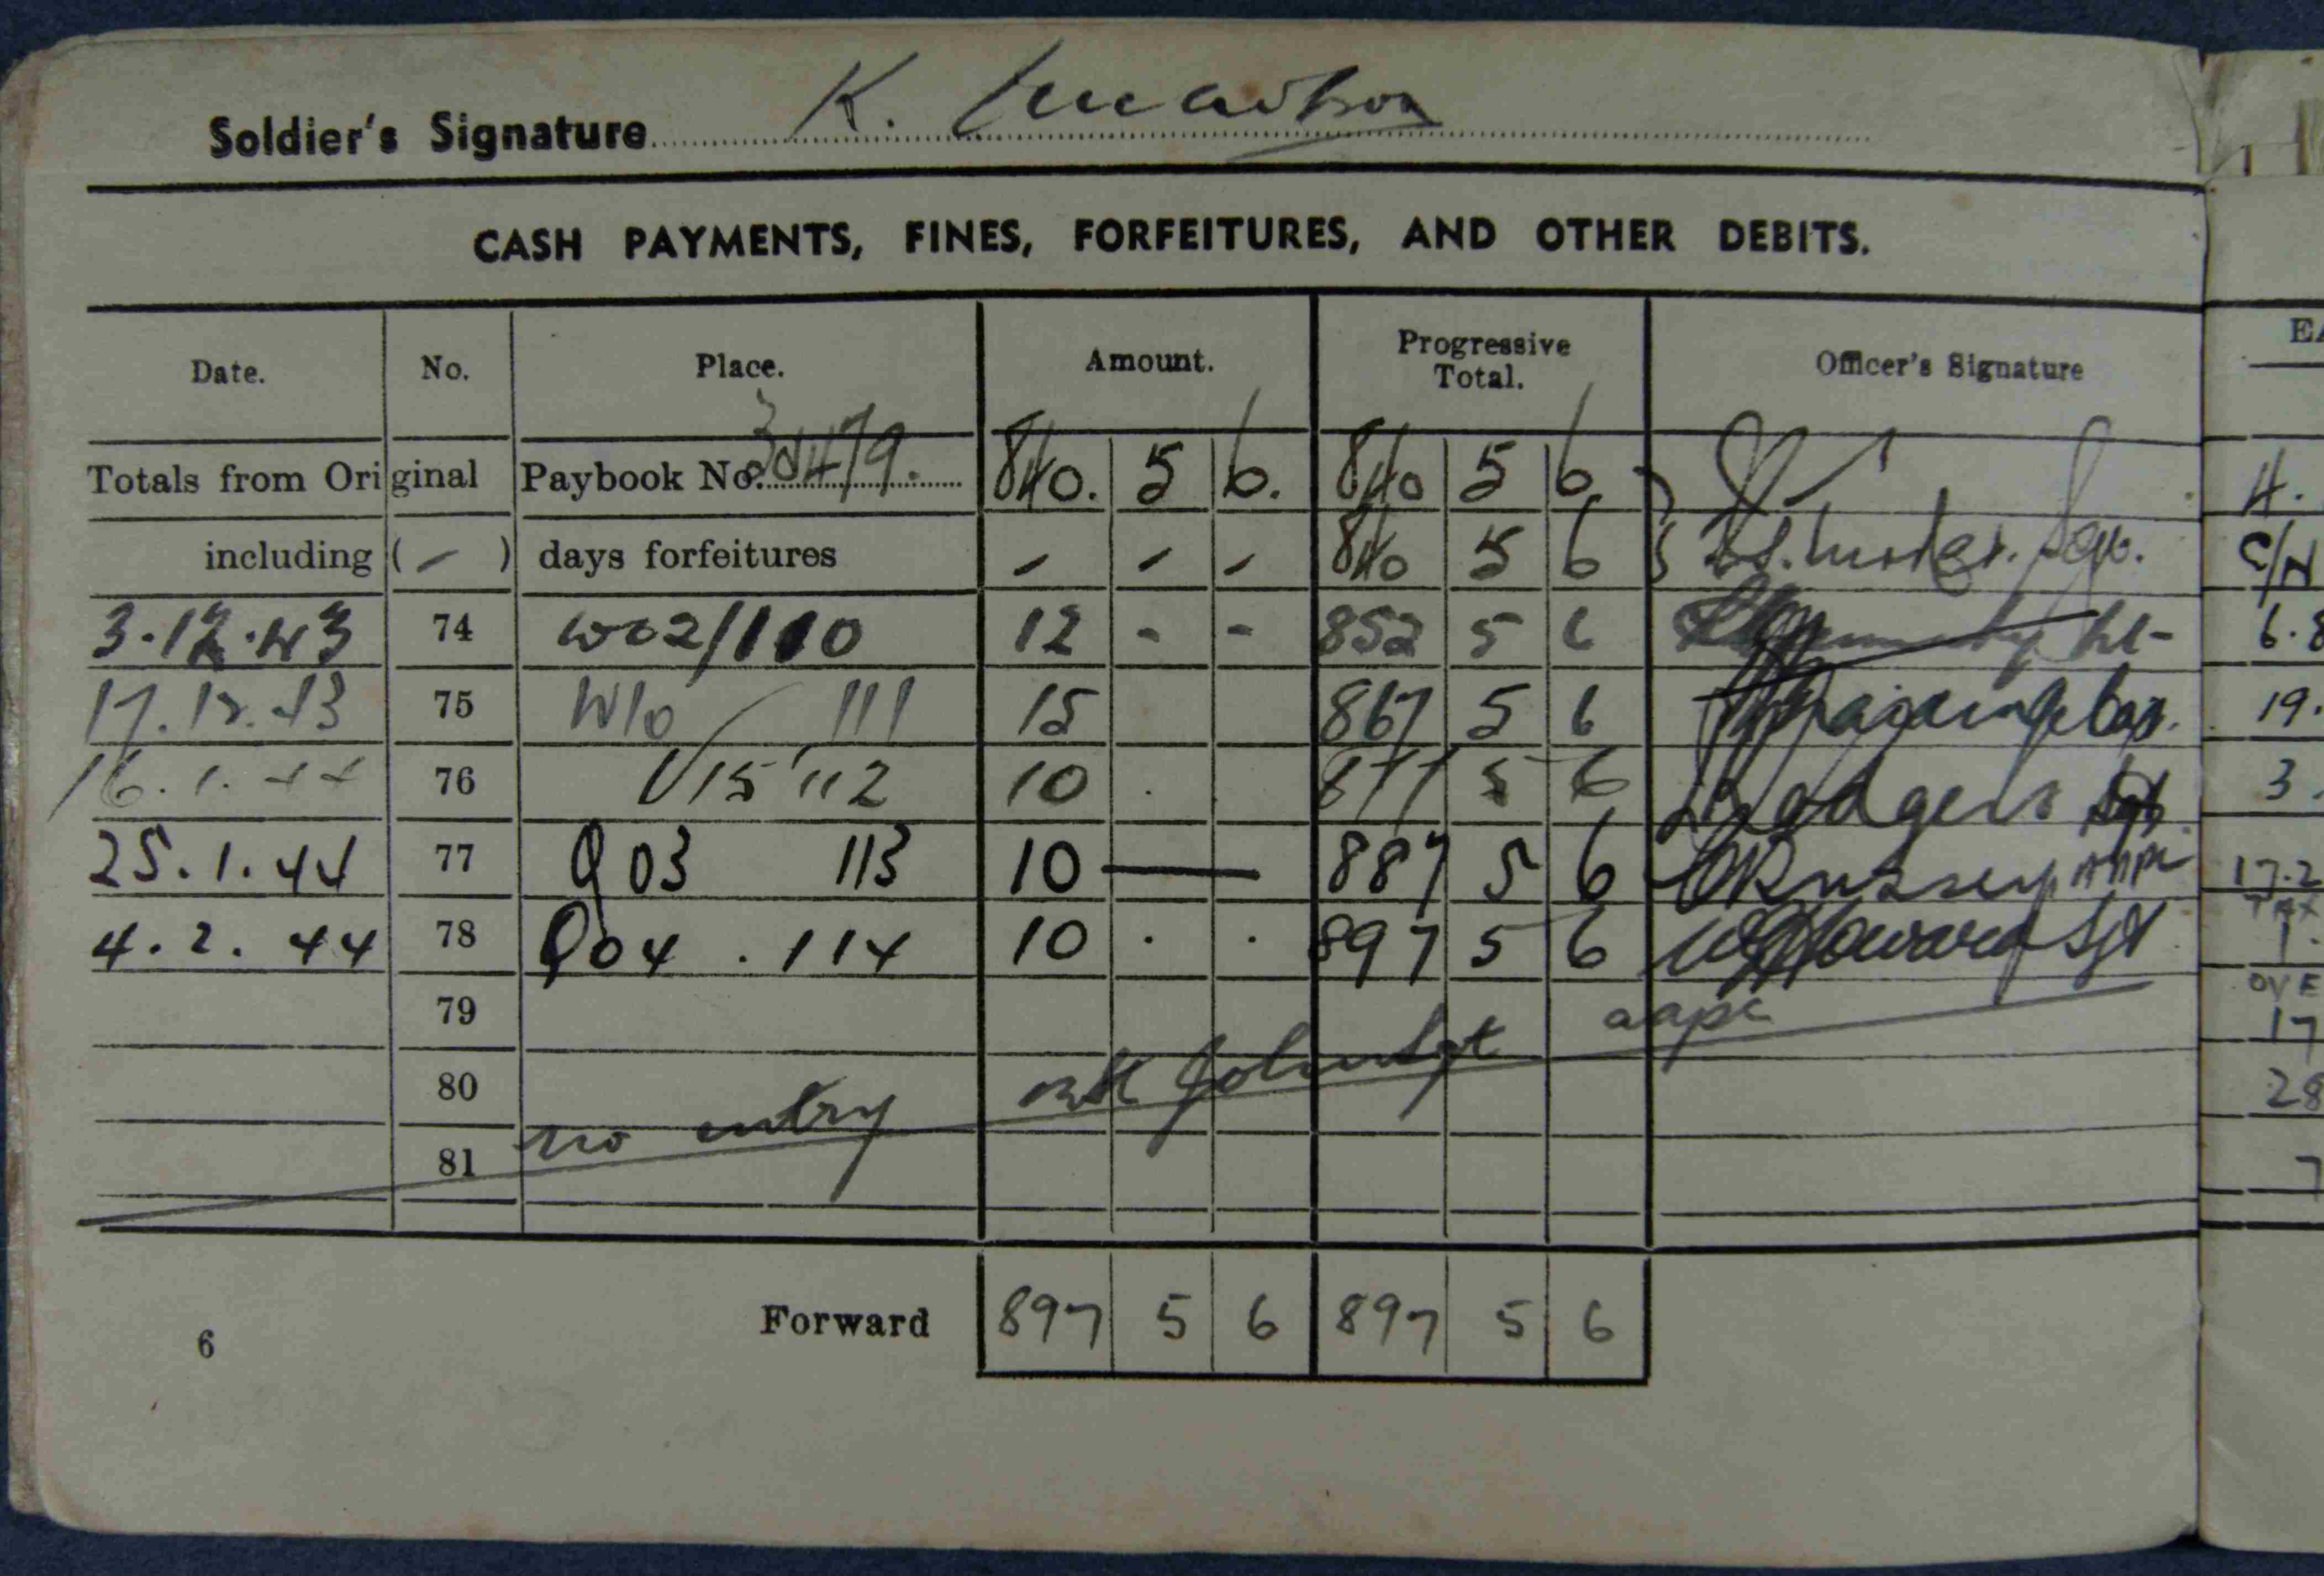 Soldier's Signature K.
CASH PAYMENTS, FINES, FORFEITURES, AND OTHER DEBITS.
Date. No. Place. Amount. Progressive Total. Officer's Signature
Totals from Original Paybook No. 840. 5 6. 840 5 6
including ( - ) days forfeitures - - - 840 5 6
3.12.43 74 W02/110 12 - - 852 5 6 Lt-
17.12.43 75 W10/111 15 867 5 6
16.1.44 76 V15 112 10 . . 877 5 6 Rodgers Sgt
25.1.44 77 Q03 113 10 — 887 5 6
4.2.44 78 Q04 . 114 10 . . 897 5 6 Howard Sgt
79 aapc
80
81 no entry
Forward 897 5 6 897 5 6
6
EA
H.
C/N
6.8
19.
3.
17.2
TAX
1.
OVE
17
28
7